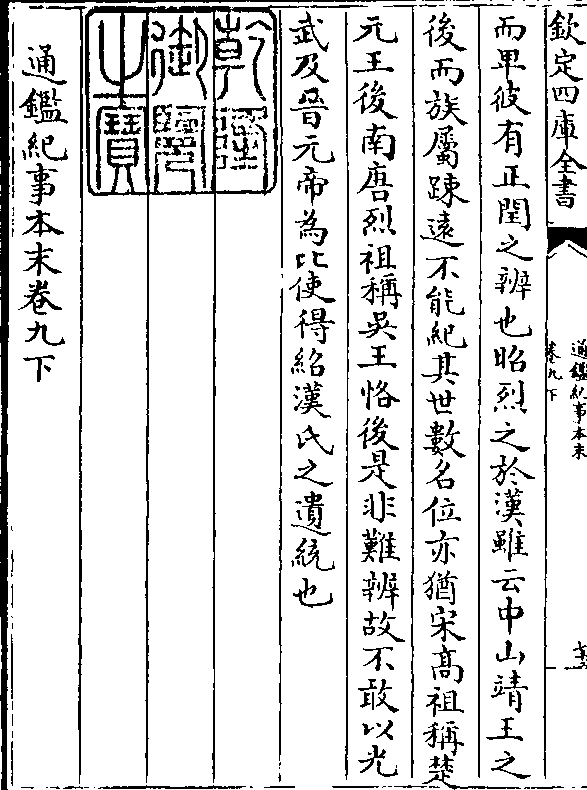 欽定四庫全書
通鑑紀事本末
卷九下
而卑彼有正閏之辨也昭烈之於漢雖云中山靖王之
後而族屬踈遠不能紀其世數名位亦猶宋髙祖稱楚
元王後南唐烈祖稱吳王恪後是非難辨故不敢以光
武及晉元帝為比使得紹漢氏之遺統也
乾隆
御覽
之寶
通鑑紀事本末卷九下